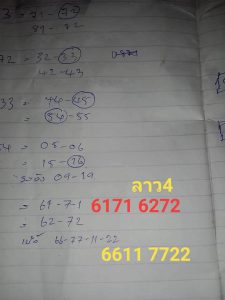 3 = 71-72
81-72
72 = 32-33
42-43
33 = 44-45
= 54-55
34 = 05-06
15-16
09-19
= 61-71
= 62-72
66-77-11-22
ลาว4
6171 6272
6611 7722